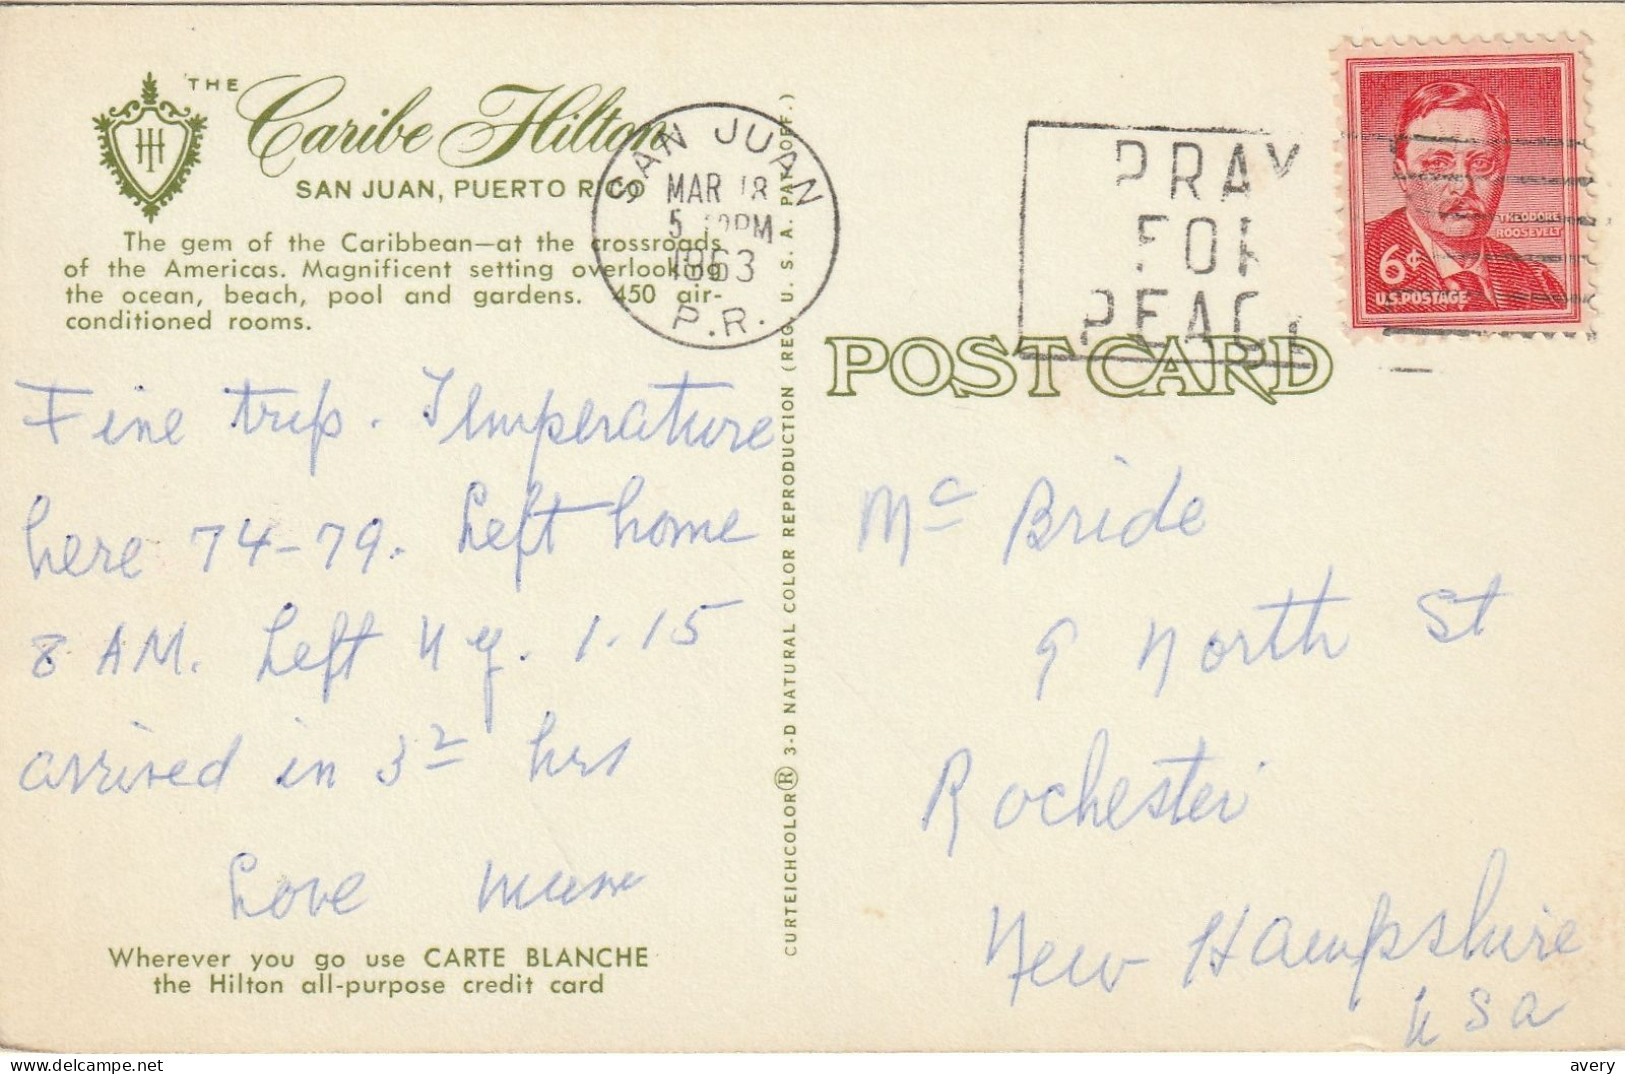 THE
Caribe Hilton
SAN JUAN, PUERTO RICO
The gem of the Caribbean—at the crossroads
of the Americas. Magnificent setting overlooking
the ocean, beach, pool and gardens. 450 air-
conditioned rooms.
Fine trip. Temperature
here 74-79. Left home
8 AM. Left N y. 1.15
arrived in 3 hrs
Love Mum
Wherever you go use CARTE BLANCHE
the Hilton all-purpose credit card
CURTEICHCOLOR® 3-D NATURAL COLOR REPRODUCTION (REG. U. S. A. PAT. OFF.)
SAN JUAN
MAR 18
5 PM
1963
P.R.
PRAY
FOR
PEACE
THEODORE
ROOSEVELT
6¢
U.S. POSTAGE
POST CARD
Mc Bride
9 North St
Rochester
New Hampshire
USA
avery